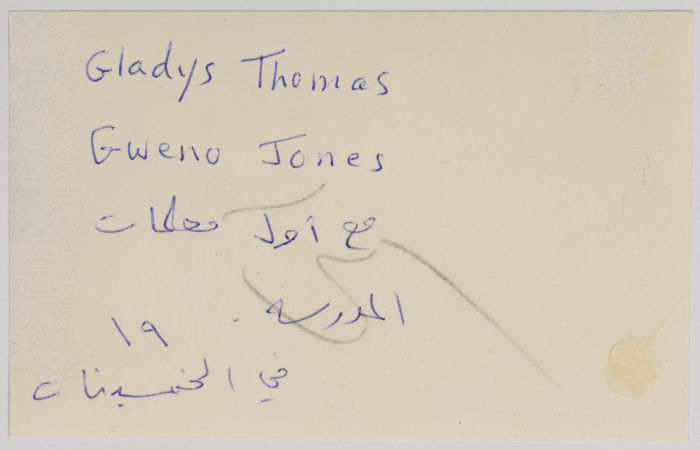 Gladys Thomas
Gweno Jones
مع أول معلمات
المدرسة.
١٩
في الخمسينات